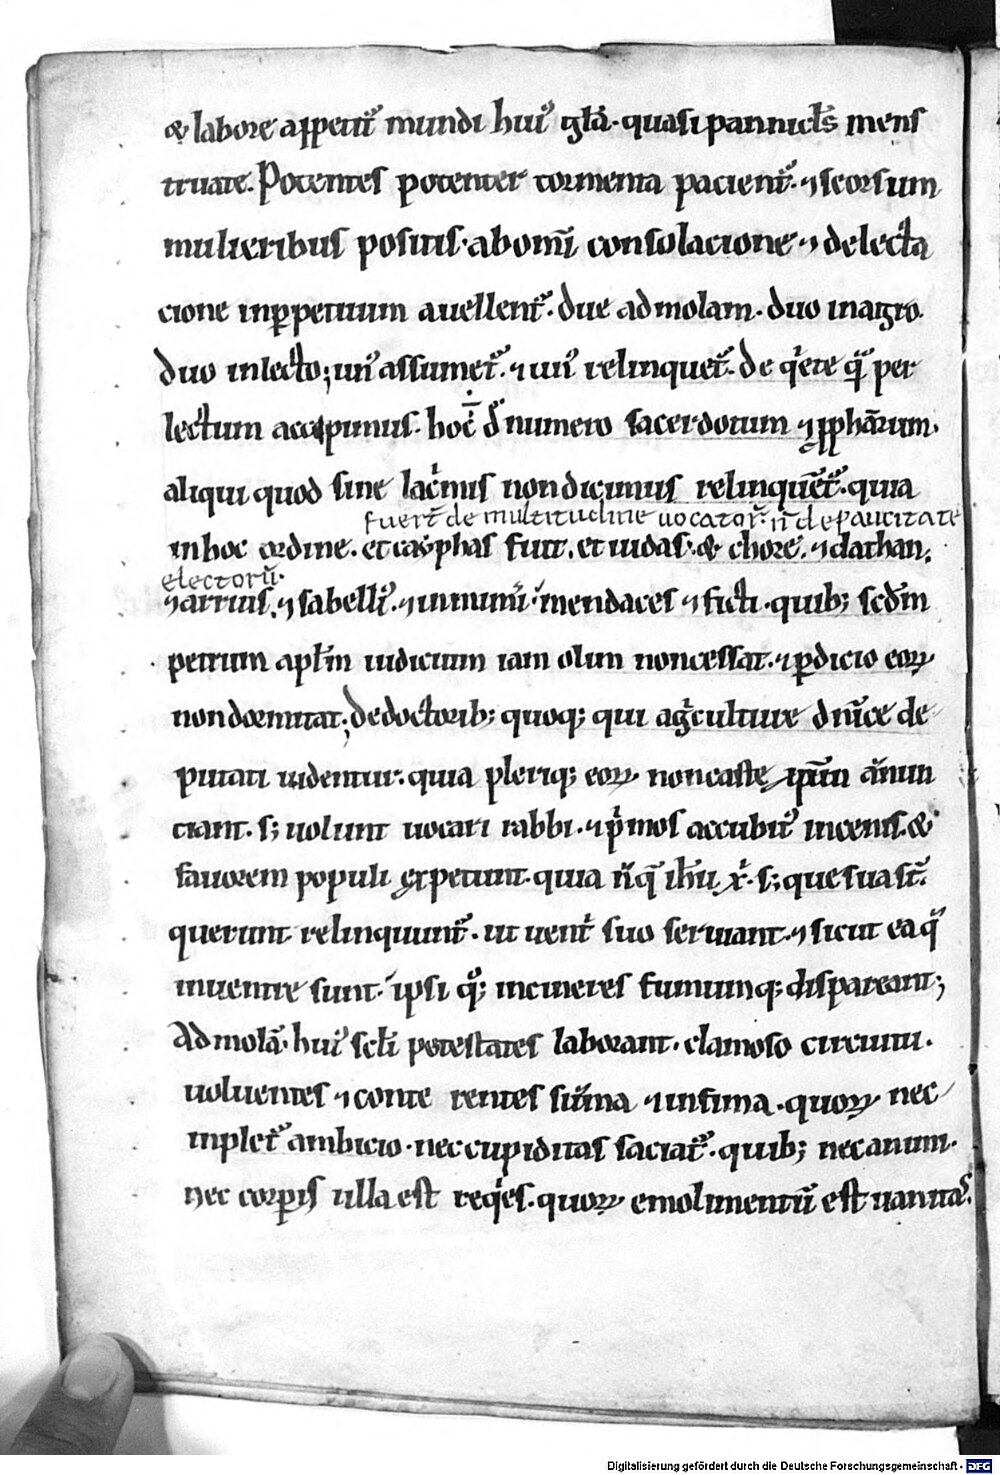 & labore appetit᷒ mundi hui᷒ gl̅a. quasi pannicl̅s mens
truate. Potentes potenter tormenta pacient᷒. ⁊ seorsum
mulieribus positis. ab om̅i consolacione ⁊ delecta
cione inp̲petuum auellent᷒. due ad molam. duo in agro.
duo in lecto; un᷒ assumet᷒. ⁊ un᷒ relinquet᷒. de q̍ete q̅ per
lectum accipimus. hoc̅ ÷ d̅ numero sacerdotum ⁊ pph̅arum.
aliqui quod sine lac̍mis non dicimus relinquu̅t᷒. quia
fuer̅t de multitudine uocator᷒. n̅ de paucitate
in hoc ordine. et cayphas fuit. et iudas. & chore. ⁊ dathan.
electoru̅.
⁊ arrius. ⁊ sabelli᷒. ⁊ innum̅i mendaces ⁊ ficti. quib; sc̅d̅m
petrum apl̅m iudicium iam olim non cessat. ⁊ p̲dicio eoꝝ
non dormitat; De doctorib; quoq; qui ag̍culture d̅nice de
putati uidentur. quia pleriq; eoꝝ non caste xp̅m a̅nun
ciant. s; uolunt uocari rabbi. ⁊ p̍mos accubit᷒ in cenis. &
fauorem populi expetunt. quia n̅ q̅ ih̅u x̍. s; que sua st̅.
querunt relinquunt᷒. ut uent̍ suo seruiant. ⁊ sicut ea q̅
in uentre sunt. ipsi q°; in cineres fumumq; dispareant;
Ad mola̅. hui᷒ sc̅l̅i potestates laborant. clamoso circuitu.
uoluentes ⁊ conte rentes su̅ma ⁊ infima. quoꝝ nec
inplet᷒ ambicio. nec cupiditas saciat᷒. quib; nec animi.
nec corp̲is ulla est req̍es. quoꝝ emolimentu̅ est uanitas.
Digitalisierung gefördert durch die Deutsche Forschungsgemeinschaft - DFG